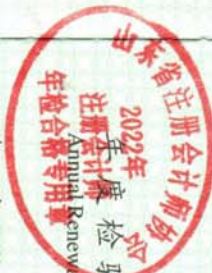 山东省注册会计师协会
2022年
注册会计师
年检合格专用章
年度检验
Annual Renewa